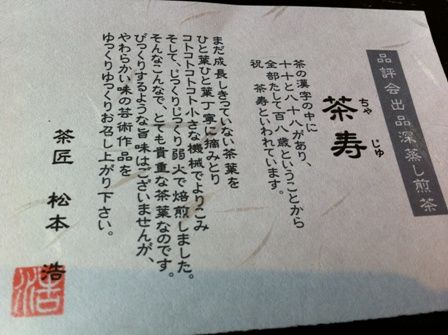 品評会出品深蒸し煎茶
茶寿
ちゃ じゅ
茶の漢字の中に
十十と八十八があり、
全部たして百八歳ということから
祝 茶寿といわれています。
まだ成長しきっていない茶葉を
ひと葉ひと葉丁寧に摘みとり
コトコトコトコト小さな機械でよりこみ
そして、じっくりじっくり弱火で焙煎しました。
そんなこんなで、とても貴重な茶葉なのです。
びっくりするような旨味はございませんが、
やわらかい味の芸術作品を
ゆっくりゆっくりお召し上がり下さい。
茶匠 松本 浩
浩